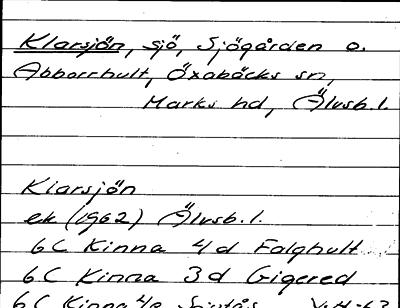 Klarsjön, sjö, Sjögården o.
Abborrhult, Öxabäcks sn,
Marks hd, Älvsb.l.
Klarsjön
ek (1962) Älvsb.l.
6C Kinna 4d Falghult
6C Kinna 3d Gigered
6C Kinna 4e